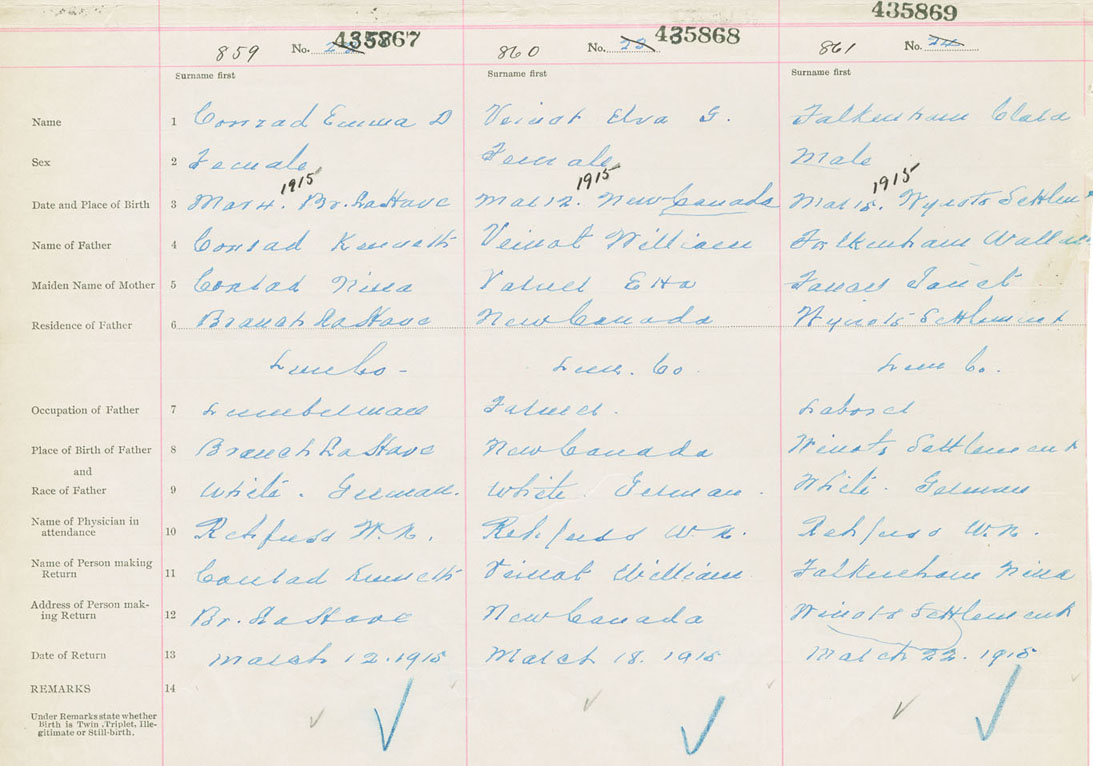 435867 435868 435869
859 No. 860 No. 861 No. 24
Surname first Surname first Surname first
Name 1 Conrad Emma D Veinot Elva G. Falkenham Clara
Sex 2 Female Female Male
1915 1915 1915
Date and Place of Birth 3 Mar 4. Br. LaHave Mar 12. New Canada Mar 15. Wynots Settlem
Name of Father 4 Conrad Kenneth Veinot William Falkenham
Maiden Name of Mother 5 Conrad Nina Etta
Residence of Father 6 Branch LaHave New Canada Wynots Settlement
Lun Co - Lun. Co Lun Co.
Occupation of Father 7 Lumberman Farmer. Laborer
Place of Birth of Father 8 Branch LaHave New Canada Winots Settlement
and
Race of Father 9 White. German. White. German. White. German
Name of Physician in
attendance 10 Rehfuss W. N. Rehfuss W. N. Rehfuss W. N.
Name of Person making
Return 11 Conrad Kenneth Veinot William Falkenham Nina
Address of Person mak-
ing Return 12 Br. LaHave New Canada Winots Settlement
Date of Return 13 March 12. 1915 March 18. 1915 March 22. 1915
REMARKS 14
Under Remarks state whether
Birth is Twin, Triplet, Ille-
gitimate or Still-birth.